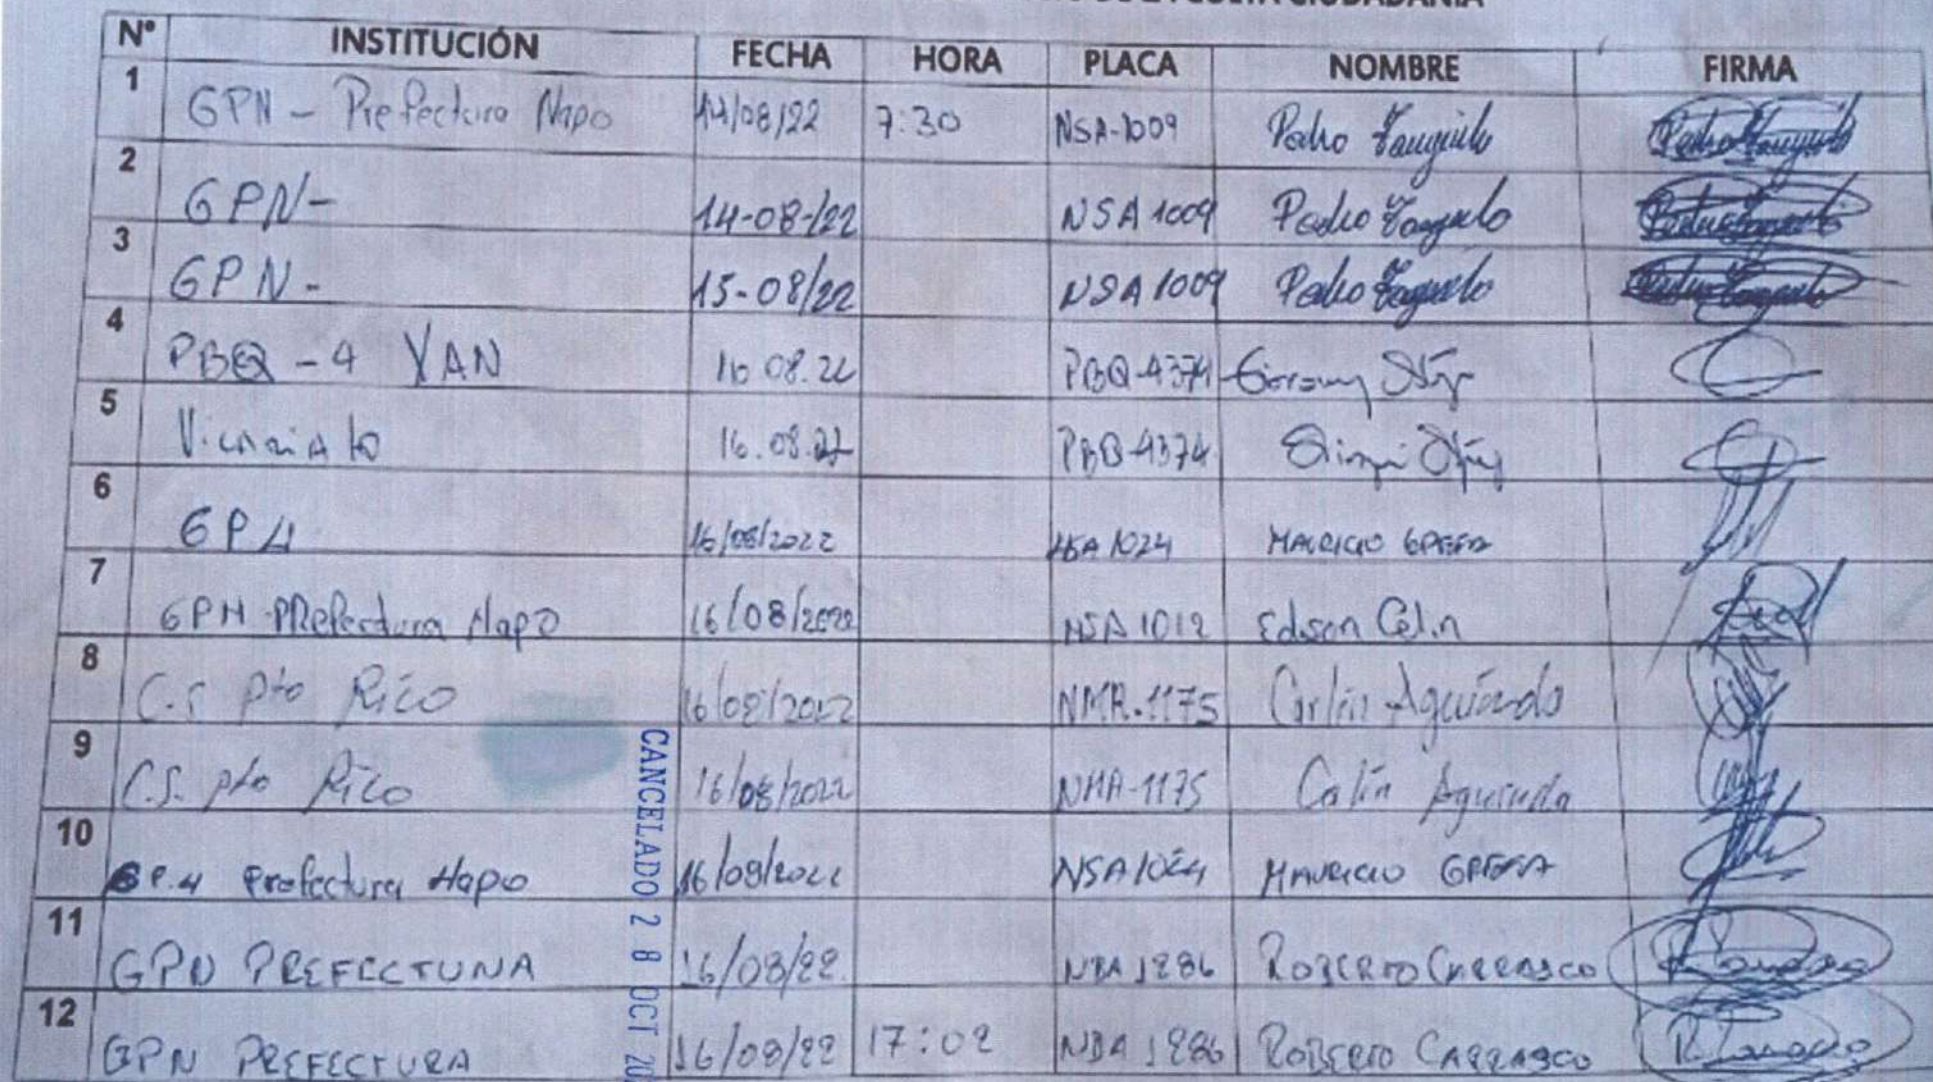 CIUDADANIA
Nº INSTITUCIÓN FECHA HORA PLACA NOMBRE FIRMA
1 GPN - Prefectura Napo 14/08/22 7:30 NSA-1009 Pedro
2 GPN- 14-08-/22 NSA 1009 Pedro
3 GPN- 15-08/22 NSA 1009 Pedro
4 PBQ-4 VAN 16.08.22 PBQ-4374
5 Vicariato 16.08.22 PBQ-4374
6 16/08/2022 1024 MAURICIO GREFA
7 GPN-PRefectura Napo 16/08/2022 NSA 1012 Edison Celin
8 C.S pto Rico 16/08/2022 NMA-1175 Carlín Aguinda
9 C.S. pto Rico 16/08/2022 NMA-1175 Calín Aguinda
10 Prefectura Napo 16/08/2022 NSA1024 MAURICIO GREFA
11 GPN PREFECTURA 16/08/22 NBA 1286 ROBERTO CARRASCO
12 GPN PREFECTURA 16/08/22 17:02 NBA 1286 ROBERTO CARRASCO
CANCELADO 28 OCT 20